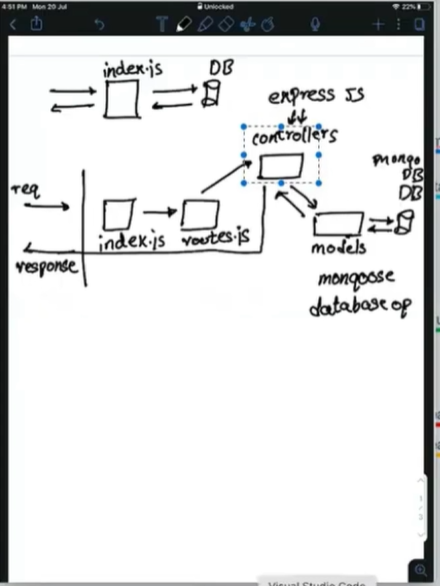 4:51 PM Mon 20 Jul
Unlocked
22%
index.js
DB
express JS
controllers
mongo
DB
DB
req
index.js
routes.js
models
response
mongoose
database op
Visual Studio Code